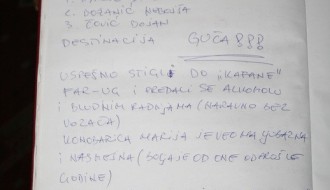 2. DOŽANIĆ NEBOJŠA
3. ČOVIĆ DEJAN
DESTINACIJA GUČA !!!
USPEŠNO STIGLI DO „KAFANE"
PAR-UG I PREDALI SE ALKOHOLU
I BLUDNIM RADNJAMA (NARAVNO BEZ
VOZAČA)
KONOBARICA MARIJA JE VEOMA LJUBAZNA
I NASMEJANA (BOLJA JE OD ONE OD PROŠLE
GODINE)